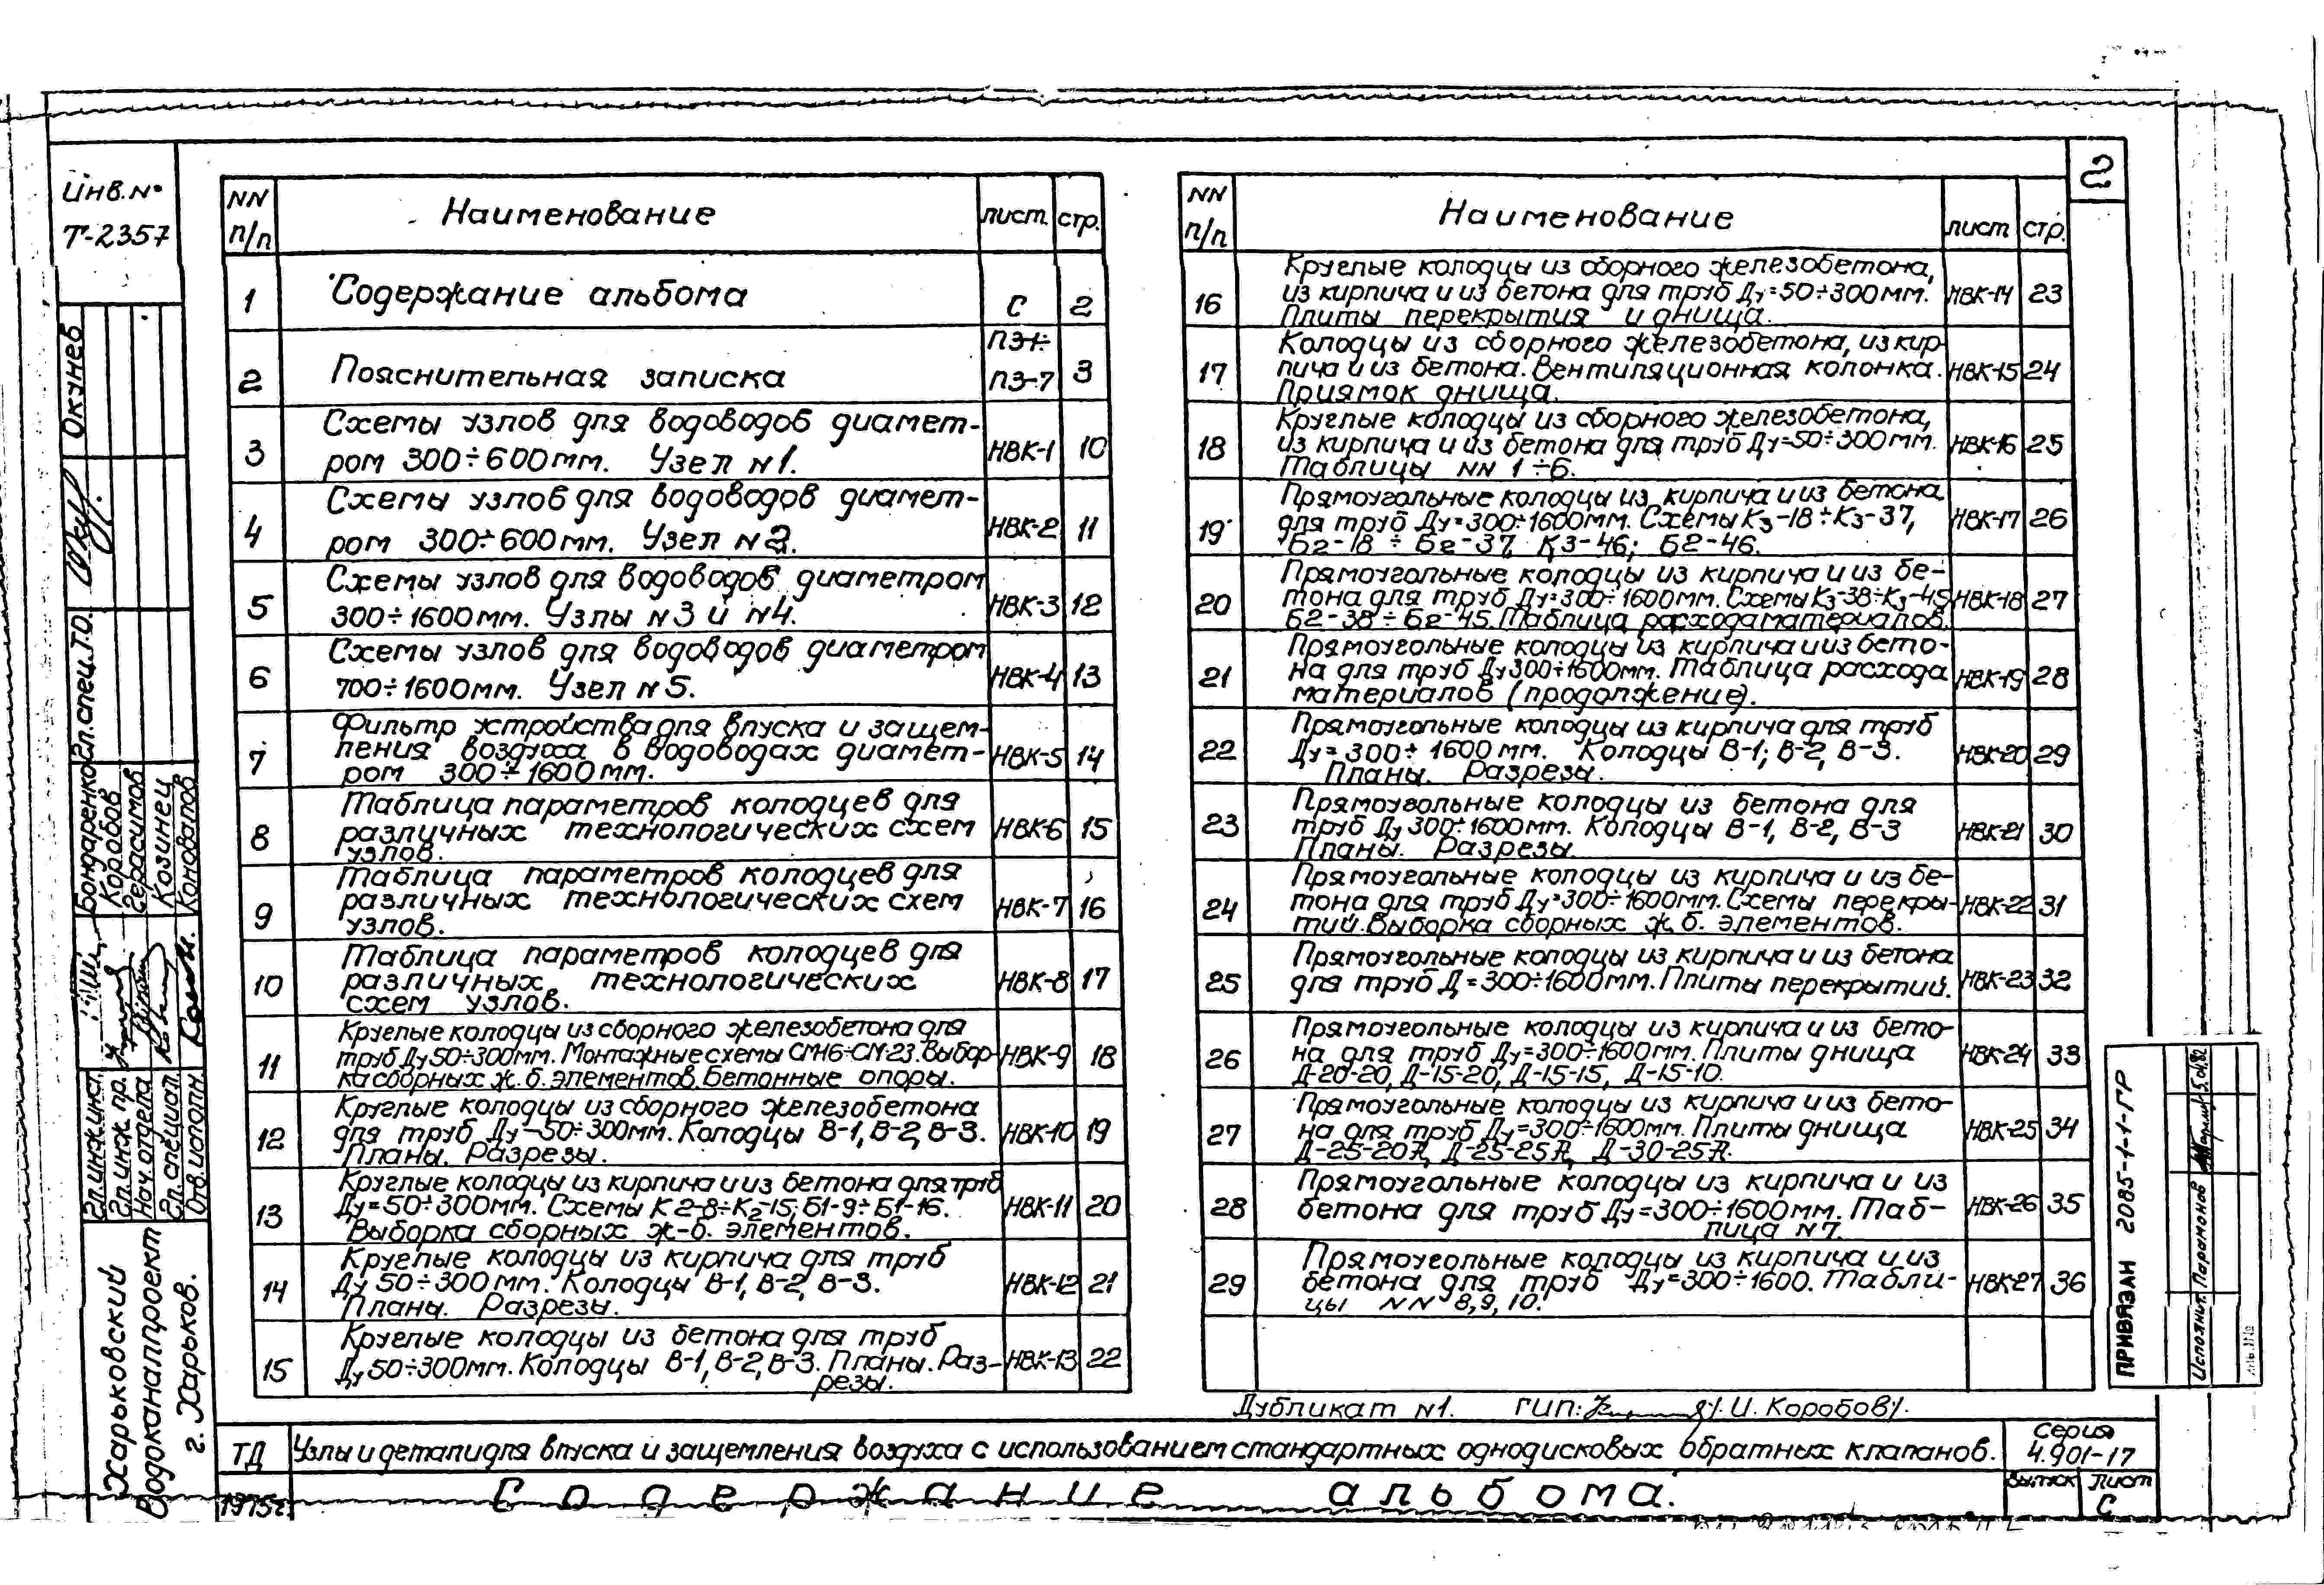 2
Инв.№
Т-2357
NN п/п Наименование лист. стр.
1 Содержание альбома С 2
2 Пояснительная записка ПЭ-1÷ ПЗ-7 3
3 Схемы узлов для водоводов диамет-
ром 300÷600мм. Узел №1. НВК-1 10
4 Схемы узлов для водоводов диамет-
ром 300÷600мм. Узел №2. НВК-2 11
5 Схемы узлов для водоводов диаметром
300÷1600мм. Узлы №3 и №4. НВК-3 12
6 Схемы узлов для водоводов диаметром
700÷1600мм. Узел №5. НВК-4 13
7 Фильтр устройства для впуска и защем-
ления воздуха в водоводах диамет-
ром 300÷1600мм. НВК-5 14
8 Таблица параметров колодцев для
различных технологических схем
узлов. НВК-6 15
9 Таблица параметров колодцев для
различных технологических схем
узлов. НВК-7 16
10 Таблица параметров колодцев для
различных технологических
схем узлов. НВК-8 17
11 Круглые колодцы из сборного железобетона для
труб Ду50÷300мм. Монтажные схемы СМ16÷СМ-23. Выбор-
ка сборных ж.б. элементов. Бетонные опоры. НВК-9 18
12 Круглые колодцы из сборного железобетона
для труб Ду-50÷300мм. Колодцы В-1, В-2, В-3.
Планы. Разрезы. НВК-10 19
13 Круглые колодцы из кирпича и из бетона для труб
Ду=50÷300мм. Схемы К2-8÷К2-15; Б1-9÷Б1-16.
Выборка сборных ж-б. элементов. НВК-11 20
14 Круглые колодцы из кирпича для труб
Ду 50÷300мм. Колодцы В-1, В-2, В-3.
Планы. Разрезы. НВК-12 21
15 Круглые колодцы из бетона для труб
Ду 50÷300мм. Колодцы В-1, В-2, В-3. Планы. Раз-
резы. НВК-13 22
NN п/п Наименование лист стр.
16 Круглые колодцы из сборного железобетона,
из кирпича и из бетона для труб Ду=50÷300мм.
Плиты перекрытия и днища. НВК-14 23
17 Колодцы из сборного железобетона, из кир-
пича и из бетона. Вентиляционная колонка.
Приямок днища. НВК-15 24
18 Круглые колодцы из сборного железобетона,
из кирпича и из бетона для труб Ду=50÷300мм.
Таблицы NN 1÷6. НВК-16 25
19 Прямоугольные колодцы из кирпича и из бетона
для труб Ду=300÷1600мм. Схемы К3-18÷К3-37,
Б2-18÷Б2-37, К3-46; Б2-46. НВК-17 26
20 Прямоугольные колодцы из кирпича и из бе-
тона для труб Ду=300÷1600мм. Схемы К3-38÷К3-45
Б2-38÷Б2-45. Таблица расхода материалов. НВК-18 27
21 Прямоугольные колодцы из кирпича и из бето-
на для труб Ду300÷1600мм. Таблица расхода
материалов (продолжение). НВК-19 28
22 Прямоугольные колодцы из кирпича для труб
Ду=300÷1600мм. Колодцы В-1; В-2, В-3.
Планы. Разрезы. НВК-20 29
23 Прямоугольные колодцы из бетона для
труб Ду 300÷1600мм. Колодцы В-1, В-2, В-3
Планы. Разрезы. НВК-21 30
24 Прямоугольные колодцы из кирпича и из бе-
тона для труб Ду=300÷1600мм. Схемы перекры-
тий. Выборка сборных ж.б. элементов. НВК-22 31
25 Прямоугольные колодцы из кирпича и из бетона
для труб Д=300÷1600мм. Плиты перекрытий. НВК-23 32
26 Прямоугольные колодцы из кирпича и из бето-
на для труб Ду=300÷1600мм. Плиты днища
Д-20-20, Д-15-20, Д-15-15, Д-15-10. НВК-24 33
27 Прямоугольные колодцы из кирпича и из бето-
на для труб Ду=300÷1600мм. Плиты днища
Д-25-20А, Д-25-25А, Д-30-25А. НВК-25 34
28 Прямоугольные колодцы из кирпича и из
бетона для труб Ду=300÷1600мм. Таб-
лица №7. НВК-26 35
29 Прямоугольные колодцы из кирпича и из
бетона для труб Ду=300÷1600. Табли-
цы NN 8, 9, 10. НВК-27 36
Дубликат №1. ГИП: /И. Коробов/.
ТД Узлы и детали для впуска и защемления воздуха с использованием стандартных однодисковых обратных клапанов. Серия 4.901-17
1975г. Содержание альбома. Выпуск Лист С
Харьковский
Водоканалпроект
г. Харьков.
Гл. инж. инст. Бондаренко
Гл. инж. пр. Коробов
Нач. отдела Герасимов
Гл. специал. Козинец
Отв. исполн Коновалов
Гл. спец. Т.О. Окунев
ПРИВЯЗАН 2085-1-1-ГР
Исполнит. Парамонов 5.01.82
Инв. №